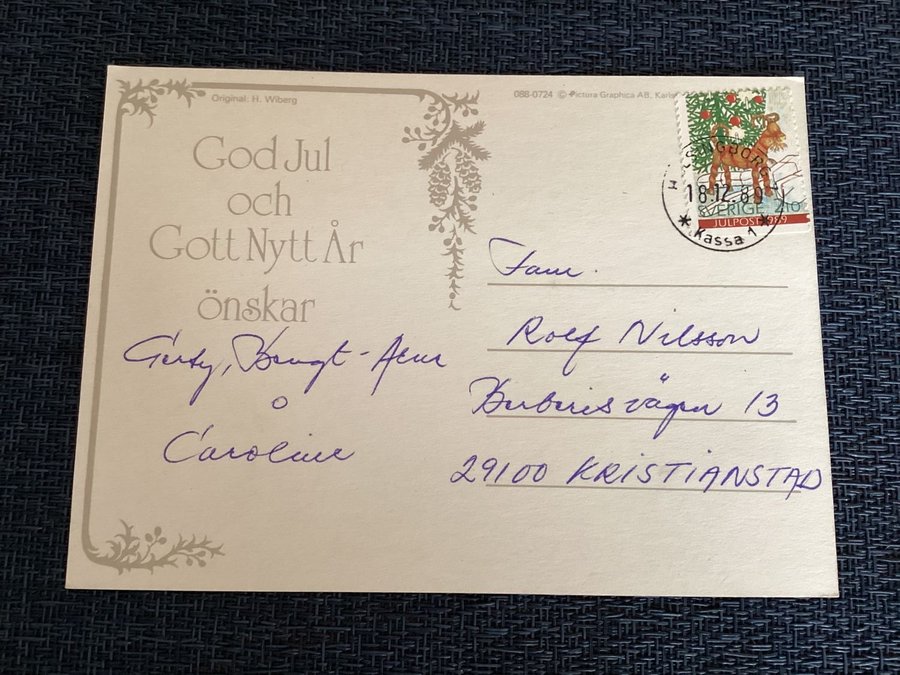 Original: H. Wiberg
088-0724 © Pictura Graphica AB, Karls
God Jul
och
Gott Nytt År
önskar
Bengt-Arne
o
Caroline
HELSINGBORG
18.12.89
* Kassa 1 *
SVERIGE 210
JULPOST 1989
Fam.
Rolf Nilsson
Berberisvägen 13
29100 KRISTIANSTAD